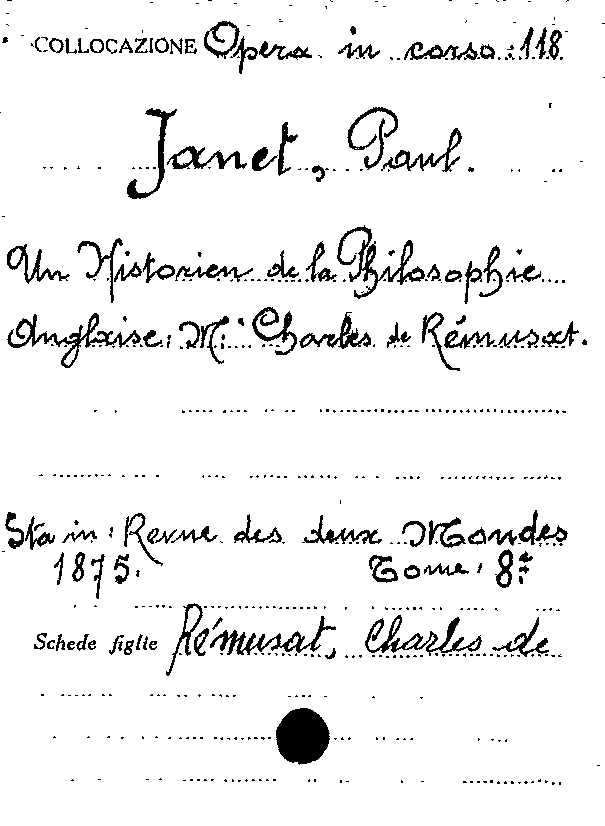 COLLOCAZIONE Opera in corso: 118
Janet, Paul.
Un Historien de la Philosophie
Anglaise: M.r Charles de Rémusat.
Sta in: Revue des deux Mondes
1875. Tome: 8:
Schede figlie Rémusat, Charles de